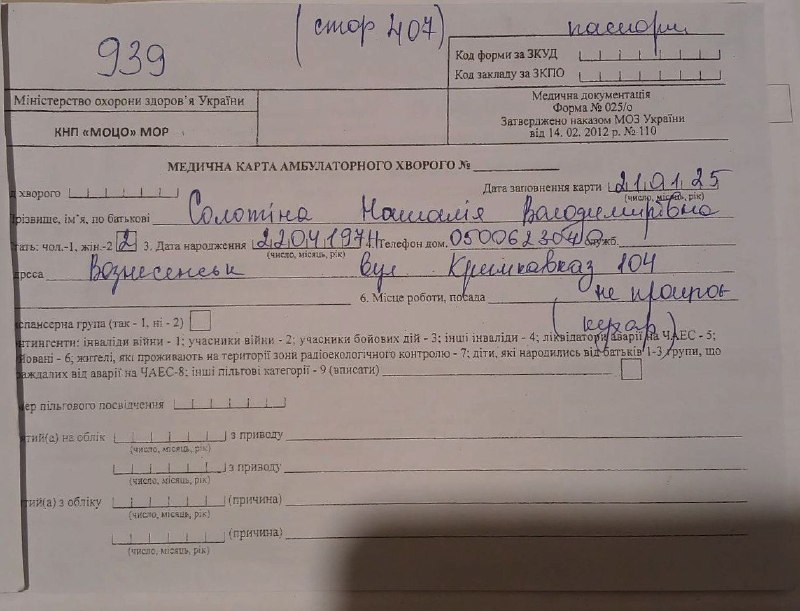 939
(стор 407)
паспорт
Код форми за ЗКУД
Код закладу за ЗКПО
Міністерство охорони здоров'я України
КНП «МОЦО» МОР
Медична документація
Форма № 025/о
Затверджено наказом МОЗ України
від 14. 02. 2012 р. № 110
МЕДИЧНА КАРТА АМБУЛАТОРНОГО ХВОРОГО №
д хворого
Дата заповнення карти 21.01.25
(число, місяць, рік)
різвище, ім'я, по батькові Солотіна Наталія Володимирівна
тать: чол.-1, жін.-2 2 3. Дата народження 22041971 Телефон дом. 0500623040 служб.
(число, місяць, рік)
дреса Вознесенськ вул. Кримкавказ 104
6. Місце роботи, посада не працює
(кухар)
испансерна група (так - 1, ні - 2)
нтингенти: інваліди війни - 1; учасники війни - 2; учасники бойових дій - 3; інші інваліди - 4; ліквідатори аварії на ЧАЕС - 5;
йовані - 6; жителі, які проживають на території зони радіоекологічного контролю - 7; діти, які народились від батьків 1-3 групи, що
аждалих від аварії на ЧАЕС-8; інші пільгові категорії - 9 (вписати)
мер пільгового посвідчення
ятий(а) на облік з приводу
(число, місяць, рік)
з приводу
(число, місяць, рік)
тий(а) з обліку (причина)
(число, місяць, рік)
(причина)
(число, місяць, рік)